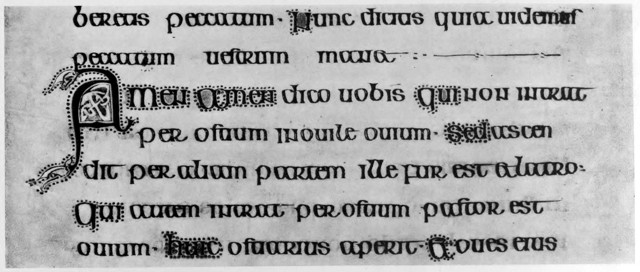 beretis peccatum. Nunc dicitis quia uidemus
peccatum uestrum manet
Amen amen dico uobis qui non intrat
per ostium in ouile ouium. sed ascen
dit per aliam partem ille fur est & latro.
Qui autem intrat per ostium pastor est
ouium. huic ostiarius aperit. & oues eius